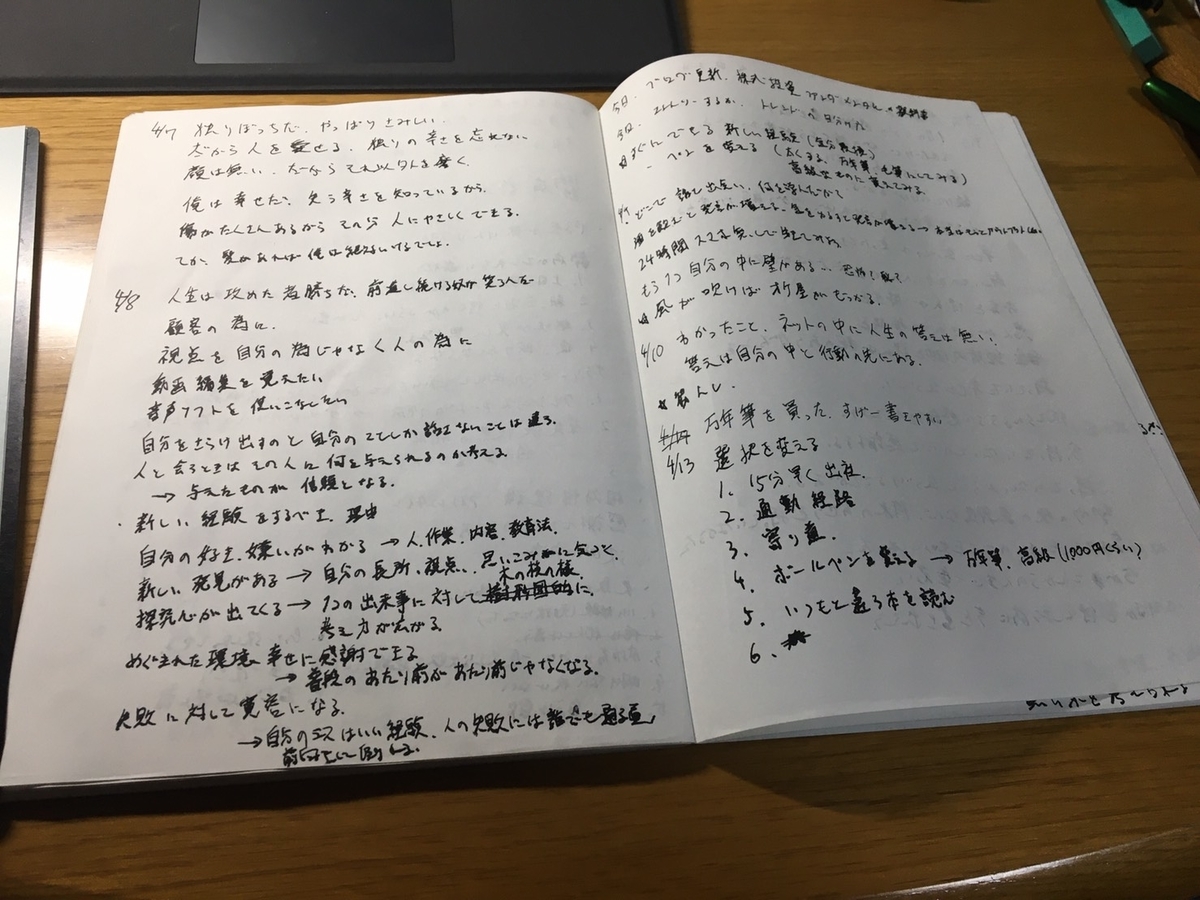 4/7 独りぼっちだ、やっぱりさみしい。
だから人を愛せる。独りの辛さを忘れない
顔は無い、だからそれ以外を磨く。
俺は幸せだ、失う辛さを知っているから。
傷がたくさんあるからその分人にやさしくできる。
てか、愛があれば俺は
4/8 人生は攻めた者勝ちだ、前進し続ける奴が笑う
顧客の為に.
視点を自分の為じゃなく人の為に
動画編集を覚えたい
音声ソフトを使いこなしたい
自分をさらけ出すのと自分のことしか話さないことは違う.
人と会うときはその人に何を与えられるのか考える.
→ 与えたものが信頼となる.
・新しい経験をするべき理由
自分の好き、嫌いがわかる → 人、作業、内容、教育法、
新しい発見がある → 自分の長所、視点、思いこみに気づく、
木の枝の様に.
探究心が出てくる → 1つの出来事に対して
考え方が広がる.
めぐまれた環境、幸せに感謝できる
→ 普段のあたり前があたり前じゃなくなる.
失敗に対して寛容になる.
→ 自分のミスはいい経験、人の失敗には誰でも通る道、
前向きに
今日、ブログ更新、株式投資
今日、エントリーするか、トレンド
すぐにできる新しい経験
・ペンを変える (太くする、万年筆、毛筆にしてみる)
高級なものに変えてみる.
どこで誰と出会い、何を学んだか
24時間スマホ無しで生きてみる
もう1つ自分の中に壁がある…恐怖?
風が吹けば桶屋がもうかる.
4/10 わかったこと、ネットの中に人生の答えは無い、
答えは自分の中と行動の先にある.
★筋トレ.
万年筆を買った、すげー書きやすい
4/13 選択を変える
1. 15分早く出社.
2. 通勤経路
3. 寄り道.
4. ボールペンを変える → 万年筆、高級(1000円くらい)
5. いつもと違う本を読む
6.